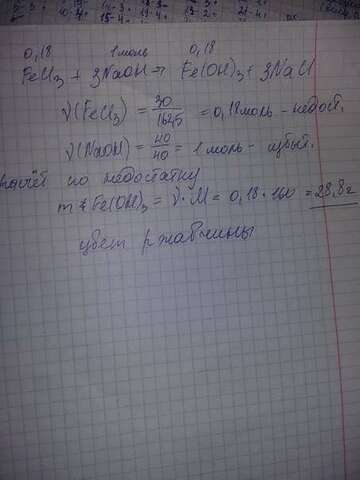 0,18 1 моль 0,18
FeCl3 + 3NaOH → Fe(OH)3 + 3NaCl
ν(FeCl3) = 30/162,5 = 0,18 моль - недост.
ν(NaOH) = 40/40 = 1 моль - избыт.
расчёт по недостатку
m Fe(OH)3 = ν·M = 0,18·160 = 28,8 г
цвет ржавчины